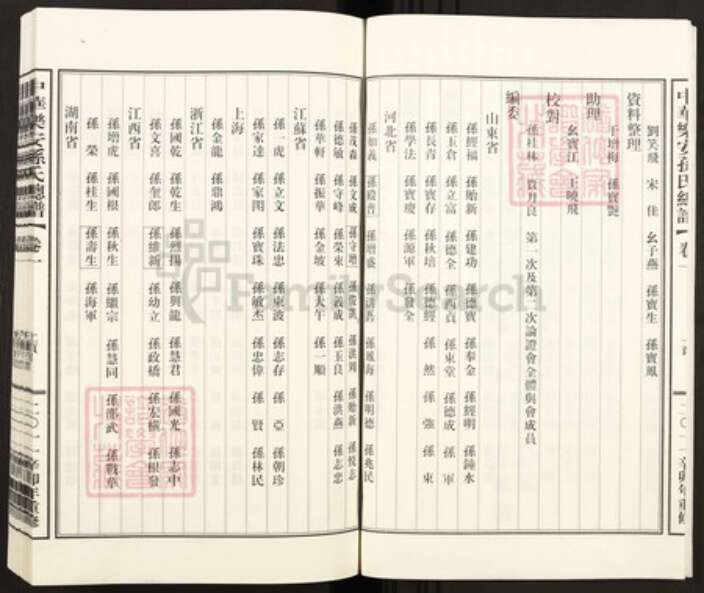 中華樂安孫氏總譜
卷一
二〇一一辛卯年重修
劉笑飛 宋佳 幺子燕 孫寶生 孫寶鳳
資料整理
于增梅 孫寶艷
助理
幺寶江 王曉飛
校對
孫桂林 賈月良 第一次及第二次論證會全體與會成員
編委
山東省
孫經福 孫貽新 孫建功 孫德寶 孫奉金 孫經明 孫鐘水
孫玉倉 孫立富 孫德全 孫西貞 孫東堂 孫德成 孫軍
孫長青 孫寶存 孫秋培 孫德經 孫然 孫強 孫東
孫學法 孫寶慶 孫源軍 孫發全
河北省
孫如義 孫殿普 孫增盛 孫鳳海 孫明德 孫兆民
孫茂森 孫文成 孫守增 孫俊凱 孫洪周 孫貽新 孫悅志
孫德敏 孫守峰 孫榮東 孫義成 孫玉良 孫洪燕 孫志忠
孫華軒 孫振華 孫金坡 孫大午 孫一順
江蘇省
孫一虎 孫立文 孫法忠 孫東波 孫志存 孫亞 孫朝珍
孫家達 孫家閎 孫寶珠 孫敏杰 孫忠偉 孫賢 孫林民
上海
孫金龍 孫鼎鴻
浙江省
孫國乾 孫乾生 孫烈揚 孫興龍 孫慧君 孫國光 孫志中
孫文喜 孫奎郎 孫維新 孫幼立 孫政橋 孫宏橫 孫根發
江西省
孫增虎 孫國根 孫秋生 孫繼宗 孫慧同 孫邵武 孫戰華
孫榮 孫桂生 孫壽生 孫海軍
湖南省
中華樂安孫氏總譜
卷一
二〇一一辛卯年重修
FamilySearch